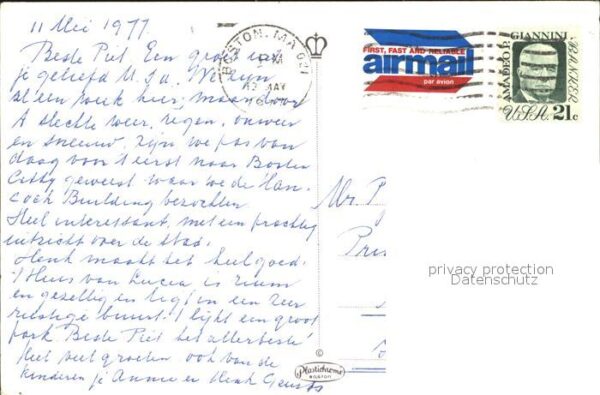 11 Mei 1977.
Beste Piet Een groet uit
je geliefd U.S.A. We zijn
al een week hier, maar door
't slechte weer, regen, onweer
en sneeuw, zijn we pas van
daag voor 't eerst naar Boston
Citty geweest waar we de Han-
cock Building bezochten.
Heel interessant, met een prachtig
uitzicht over de stad.
Henk maakt het heel goed.
't Huis van Lucia is ruim
en gezellig en ligt in een zeer
rustige buurt. 't Lijkt een groot
park. Beste Piet het allerbeste
Heel veel groeten ook van de
kinderen je Annie en Henk
BOSTON, MA 021
PM
12 MAY
FIRST, FAST AND RELIABLE
airmail
par avion
AMADEO P. GIANNINI
BANKER
USA 21c
Mr. P
privacy protection
Datenschutz
©
Plastichrome
BOSTON